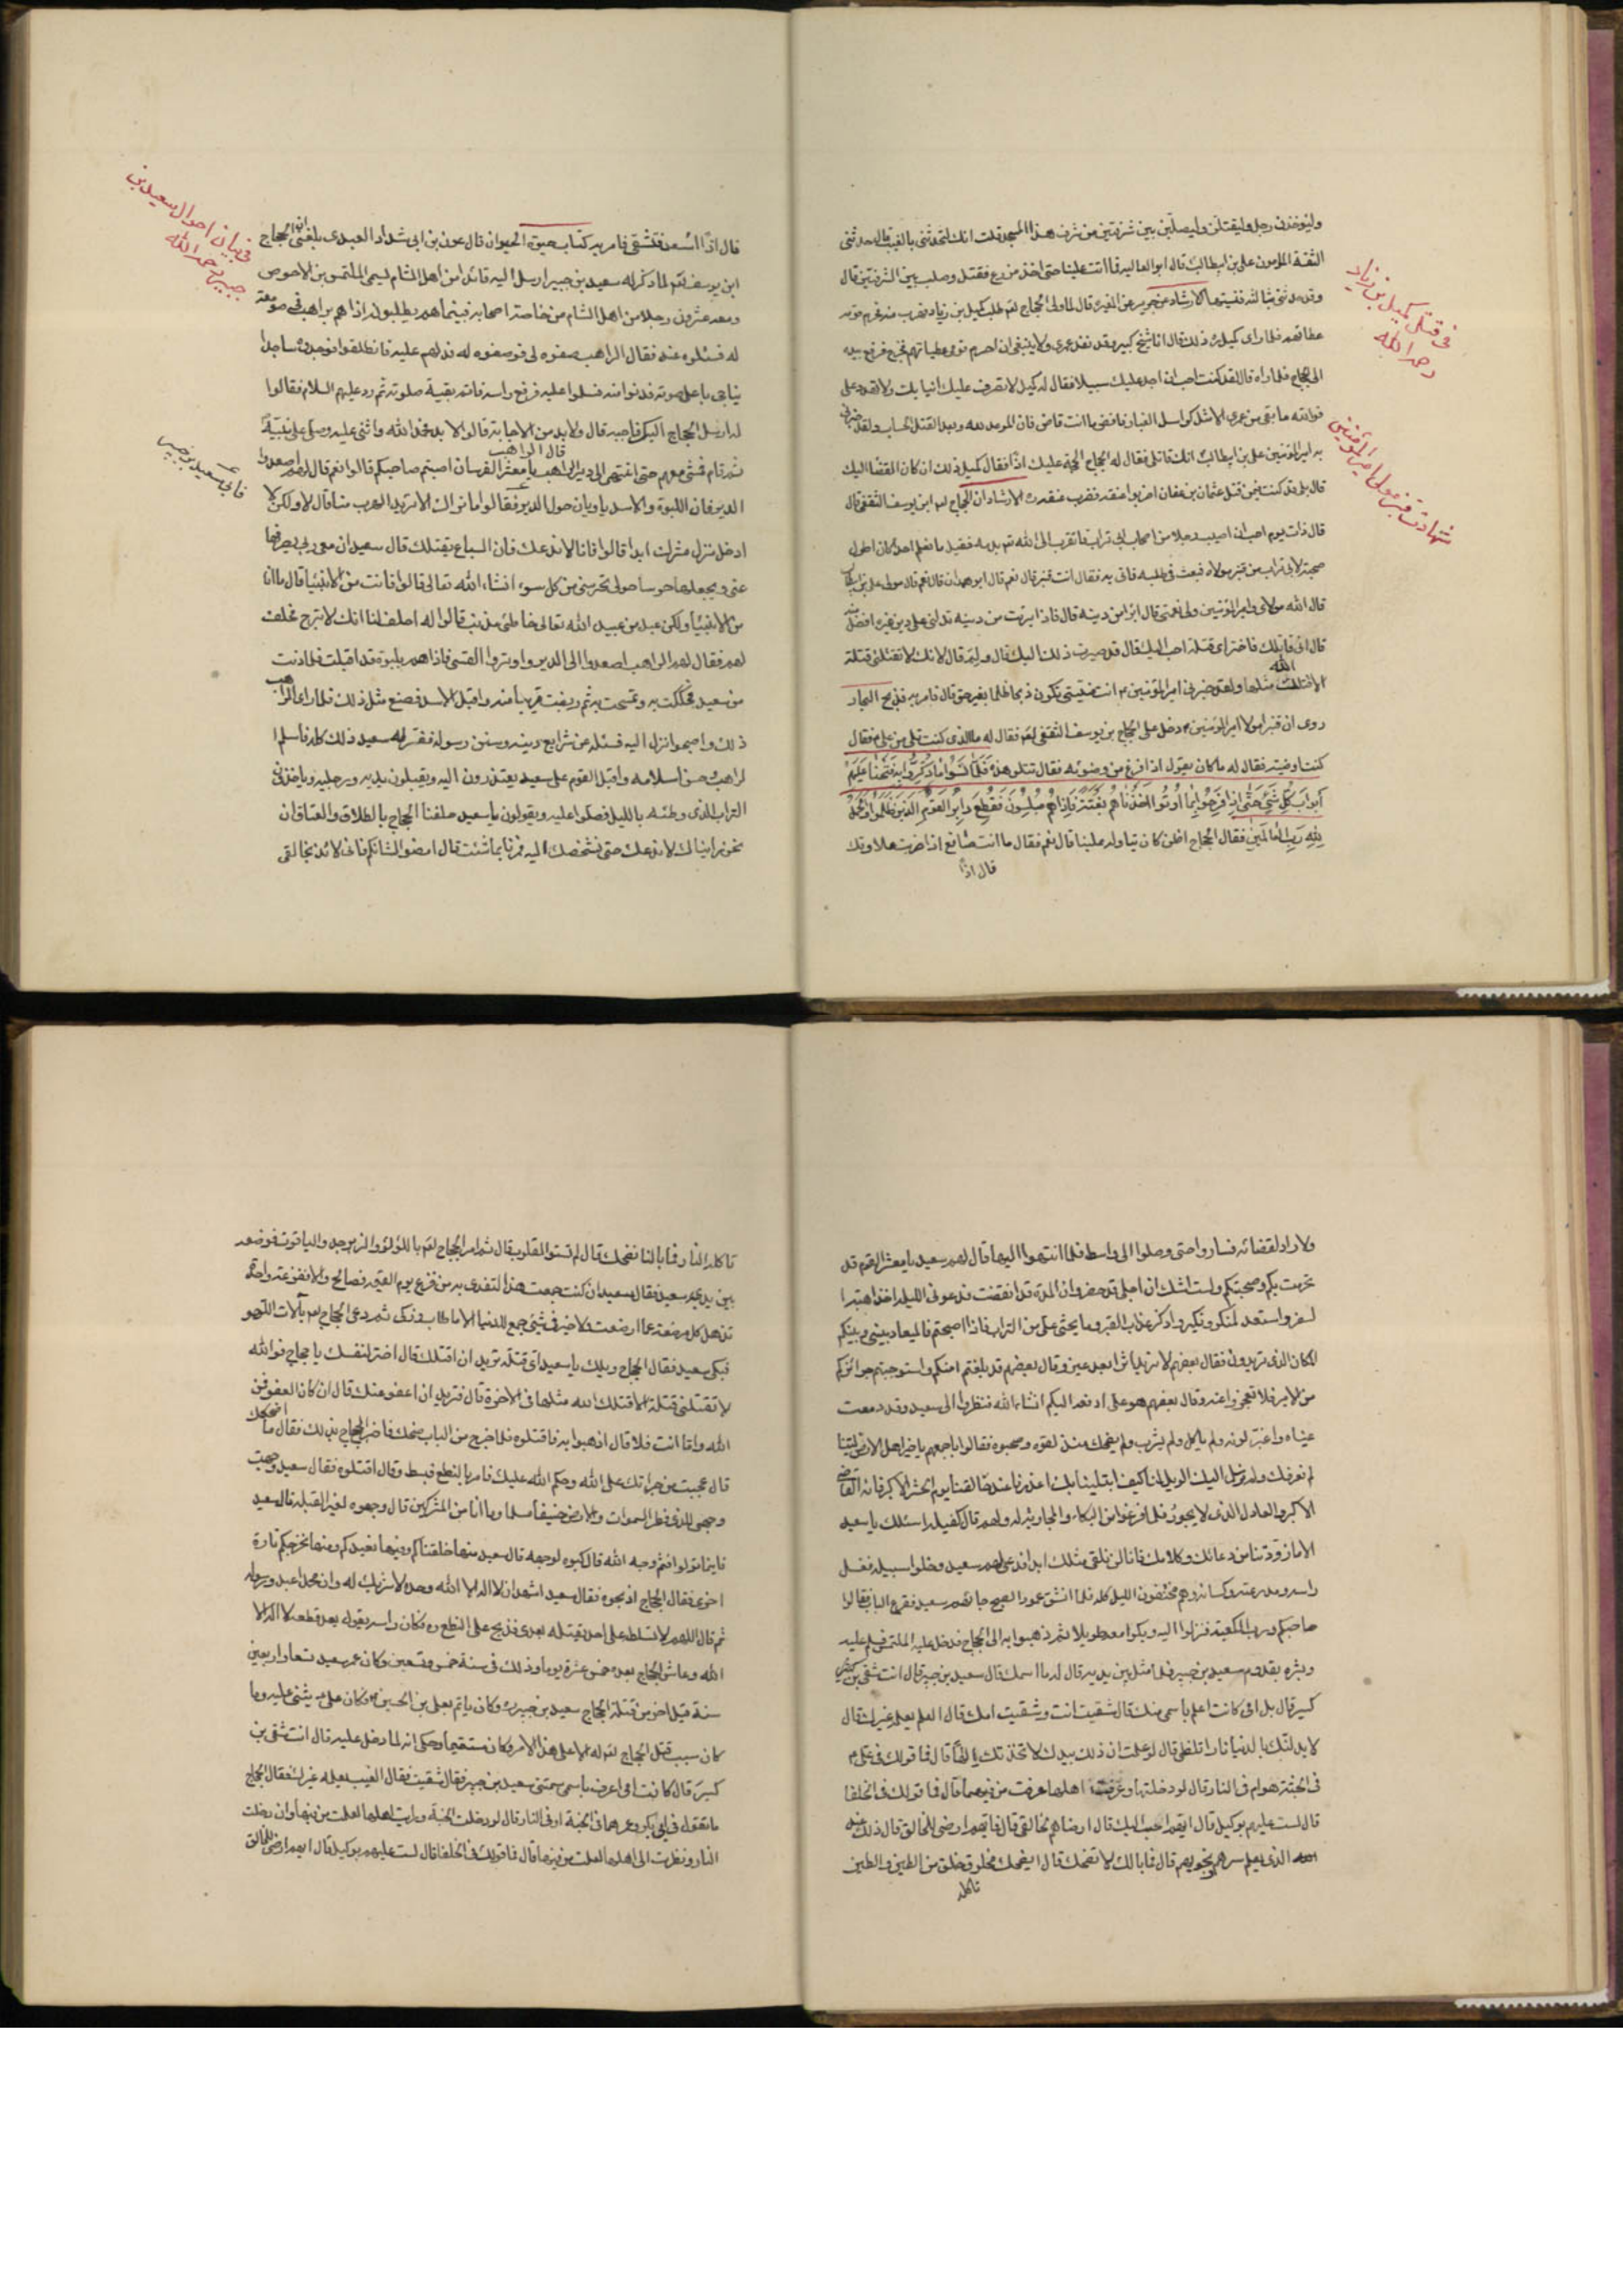 وليؤخذن رجل وليقتلن وليصلبن بين شرفتين من شرف هذا المسجد قلت انك لتحدثنى بالغيب قال حدثنى
الثقة المامون على بن ابيطالب قال ابو العاليه فما اتت علينا جمعة حتى اخذ مزرع فقتل وصلب بين الشرفتين قال
وقد حدثنى بثالثة فنسيتها الارشاد عن جرير عن المغيره قال لما ولى الحجاج لعم طلب كميل بن زياد فهرب منه فحرم قومه
عطائهم فلما راى كميل ره ذلك قال انا شيخ كبير وقد نفد عمرى ولا ينبغى ان احرم قومى عطياتهم فخرج فدفع بيده
الى الحجاج فلما راه قال لقد كنت احب ان اجد عليك سبيلا فقال له كميل لا تصرف عليك انيابك ولا تهدم على
فوالله ما بقى من عمرى الا مثل كواسل الغبار فاقض ما انت قاض فان الموعد لله وبعد القتل الحساب ولقد خبرنى
به امير المؤمنين على بن ابيطالب انك قاتلى فقال له الحجاج الحجة عليك اذًا فقال كميل ذلك ان كان القضا اليك
قال بلى قد كنت فيمن قتل عثمان بن عفان اضربوا عنقه فضرب عنقه ره الارشاد ان الحجاج لعم ابن يوسف الثقفى قال
قال ذات يوم احب ان اصيب رجلا من اصحاب ابى تراب فاتقرب الى الله تع بدمه فقيل ما نعلم احدا كان اطول
صحبة لابى تراب من قنبر مولاه فبعث فى طلبه فاتى به فقال انت قنبر قال نعم قال ابو همدان قال نعم قال مولى على بن ابيطالب
قال الله مولاى وامير المؤمنين ولى نعمتى قال ابرا من دينه قال فاذا برئت من دينه تدلنى على دين غيره افضل منه
قال انى قاتلك فاختر اى قتلة احب اليك قال قد صيرت ذلك اليك قال ولم قال لانك لا تقتلنى قتلة
الا قتلتك الله مثلها ولقد خبرنى امير المؤمنين ع ان منيتى تكون ذبحا ظلما بغير حق قال فامر به فذبح البحار
روى ان قنبرا مولا امير المؤمنين ع دخل على الحجاج بن يوسف الثقفى لعم فقال له ما الذى كنت تلى من على ع فقال
كنت اوضيه فقال له ما كان يقول اذا فرغ من وضوئه فقال تتلو هذه فَلَمَّا نَسُوا مَا ذُكِّرُوا بِهِ فَتَحْنَا عَلَيْهِمْ
اَبْوَابَ كُلِّ شَيْءٍ حَتَّى اِذَا فَرِحُوا بِمَا اُوتُوا اَخَذْنَاهُمْ بَغْتَةً فَاِذَا هُمْ مُبْلِسُونَ فَقُطِعَ دَابِرُ الْقَوْمِ الَّذِينَ ظَلَمُوا وَالْحَمْدُ
لِلّهِ رَبِّ الْعَالَمِينَ فقال الحجاج اظن كان يتاولها علينا قال نعم فقال ما انت صانع اذا ضربت علاوتك
قال اذًا
فى قتل كميل بن زياد
رحمه الله
شهادت قنبر مولى امير المؤمنين
قال اذًا اسعد وتشقى فامر به كتاب حيوة الحيوان قال عون بن ابى شداد العبدى بلغنى ان الحجاج
ابن يوسف لعم لما ذكر له سعيد بن جبير ارسل اليه قائدا من اهل الشام ليسمى الملتمس بن الاحوص
ومعه عشرون رجلا من اهل الشام من خاصة اصحابه فبينما هم يطلبونه اذا هم براهب فى صومعة
له فسئلوه عنه فقال الراهب صفوه لى فوصفوه له فدلهم عليه فانطلقوا فوجدوه ساجدا
يناجى باعلى صوته فدنوا منه فسلموا عليه فرفع راسه فاتم بقية صلوته ثم رد عليهم السلام فقالوا
له ارسل الحجاج اليك فاجبه قال ولا بد من الاجابة قالوا لا بد فحمد الله واثنى عليه وصلى على نبيّه
ثم قام فمشى معهم حتى انتهى الى دير الراهب قال الراهب يا معشر الفرسان اصبتم صاحبكم قالوا نعم قال لهم اصعدوا
الدير فان اللبوة والاسد ياويان حول الدير فقالوا ما نراك الا تريد الهرب منا قال لا ولكن لا
ادخل منزل مشرك ابدا قالوا فانا لا ندعك فان السباع تقتلك قال سعيد ان معى ربى يصرفها
عنى ويجعلها حرسا حولى تحرسنى من كل سوء انشاء الله تعالى قالوا فانت من الانبيا قال ما انا
من الانبيا ولكن عبد من عبيد الله تعالى خاطئ مذنب قالوا له احلف لنا انك لا تبرح فحلف
لهم فقال لهم الراهب اصعدوا الى الدير واوتروا القسى فاذا هم بلبوة قد اقبلت فلما دنت
من سعيد تحككت به وتمسحت به ثم ربضت قريبا منه واقبل الاسد فصنع مثل ذلك فلما راى الراهب
ذلك واصبحوا نزل اليه فسئله عن شرايع دينه وسنن رسوله ففسر له سعيد ذلك كله فاسلم ا
لراهب حسن اسلامه واقبل القوم على سعيد يعتذرون اليه ويقبلون يديه ورجليه وياخذون
التراب الذى وطئه بالليل فصلوا عليه ويقولون يا سعيد حلفنا الحجاج بالطلاق والعتاق ان
نحن رايناك لا ندعك حتى نشخصك اليه فمرنا بما شئت قال امضوا لشانكم فانى لائذ بخالقى
فى بيان احوال سعيد بن
جبير رحمه الله
فابى سعيد بن جبير
ولا راد لقضائه فساروا حتى وصلوا الى واسط فلما انتهوا اليها قال لهم سعيد يا معشر القوم قد
تحرمت بكم وصحبتكم ولست اشك ان اجلى قد حضر وان المدة قد انقضت فدعونى الليلة اخذ اهبة ا
لسفر واستعد لمنكر ونكير واذكر عذاب القبر وما يحثى على من التراب فاذا اصبحتم فالميعاد بينى وبينكم
المكان الذى تريدون فقال بعضهم لا نريد اثرا بعد عين وقال بعضهم قد بلغتم امنكم واستوجبتم جوائزكم
من الامير فلا تعجزوا عنه وقال بعضهم هو على ادفعه اليكم انشاءالله فنظروا الى سعيد وقد دمعت
عيناه واغبر لونه ولم ياكل ولم يشرب ولم يضحك منذ لقوه وصحبوه فقالوا باجمعهم يا خير اهل الارض ليتنا
لم نعرفك ولم نرسل اليك الويل لنا كيف ابتلينا بك اعذرنا عند خالقنا يوم الحشر الاكبر فانه القاضى
الاكبر والعادل الذى لا يجور فلما فرغوا من البكاء والمجاوبة له ولهم قال كفيله اسئلك يا سعيد
الا ما زودتنا من دعائك وكلامك فانا لن نلقى مثلك ابدا فدعى لهم سعيد وخلوا سبيله فغسل
راسه ومدرعته وكسائه وهم مختفون الليل كله فلما انشق عمود الصبح جائهم سعيد فقرع الباب فقالوا
صاحبكم ورب الكعبة فنزلوا اليه وبكوا معه طويلا ثم ذهبوا به الى الحجاج فدخل عليه الملتمس فسلم عليه
وبشره بقدوم سعيد بن جبير فلما مثل بين يديه قال له ما اسمك قال سعيد بن جبير قال انت شقى بن كسير
كسير قال بل امى كانت اعلم باسمى منك قال شقيت انت وشقيت امك قال العلم يعلمه غيرك قال
لابدلنك بالدنيا نارا تلظى قال لو علمت ان ذلك بيدك لاتخذتك إلهًا قال فما قولك فى على ع
فى الجنة هو ام فى النار قال لو دخلتها وعرفت اهلها عرفت من فيهما قال فما قولك فى الخلفا
قال لست عليهم بوكيل قال ايهم احب اليك قال ارضاهم لخالقى قال فايهم ارضى للخالق قال ذلك عند
الذى يعلم سرهم ونجويهم قال فما بالك لا تضحك قال ايضحك مخلوق خلق من الطين والطين
تاكله
تاكله النار فما بالنا نضحك قال لم تستو القلوب قال ثم امر الحجاج لعم باللؤلؤ والزبرجد والياقوت فوضعه
بين يدى سعيد فقال سعيد ان كنت جمعت هذا لتفتدى به من فزع يوم القيمه فصالح والا ففزعة واحدة
تذهل كل مرضعة عما ارضعت فلا خير فى شئ جمع للدنيا الا ما طاب وزكى ثم دعى الحجاج لعم بآلات اللهو
فبكى سعيد فقال الحجاج ويلك يا سعيد اى قتلة تريد ان اقتلك قال اختر لنفسك يا حجاج فوالله
لا تقتلنى قتلة الا قتلك الله مثلها فى الاخرة قال فتريد ان اعفو عنك قال ان كان العفو فمن
الله واما انت فلا قال اذهبوا به فاقتلوه فلما خرج من الباب ضحك فاخبر الحجاج بذلك فقال ما اضحكك
قال عجبت من جراتك على الله وحكم الله عليك فامر بالنطع فبسط وقال اقتلوه فقال سعيد وجهت
وجهى للذى فطر السموات والارض حنيفا مسلما وما انا من المشركين قال وجهوه لغير القبلة قال سعيد
فاينما تولوا فثم وجه الله قال كبوه لوجهه قال سعيد منها خلقناكم وفيها نعيدكم ومنها نخرجكم تارة
اخرى فقال الحجاج اذبحوه فقال سعيد اشهد ان لا اله الا الله وحده لا شريك له وان محمدا عبده ورسوله
ثم قال اللهم لا تسلطه على احد يقتله بعدى فذبح على النطع ره فكان راسه يقول بعد قطعه لا اله الا
الله وعاش الحجاج بعده خمس عشرة يوما وذلك فى سنة خمس وتسعين وكان عمر سعيد تسعا واربعين
سنة قيل اخر من قتله الحجاج سعيد بن جبير ره وكان ياتم بعلى بن الحسين ع وكان على ع يثنى عليه وما
كان سبب قتل الحجاج لعم له الا على هذا الامر وكان مستقيما وحكى انه لما دخل عليه قال انت شقى بن
كسير قال كانت امى اعرف باسمى سمتنى سعيد بن جبير فقال شقيت فقال الغيب يعلمه غيرك فقال الحجاج
ما تقول فى ابى بكر وعمر هما فى الجنة او فى النار قال لو دخلت الجنة ورايت اهلها لعلمت من فيها وان دخلت
النار ونظرت الى اهلها لعلمت من فيها قال فما قولك فى الخلفا قال لست عليهم بوكيل قال ايهم ارضى للخالق